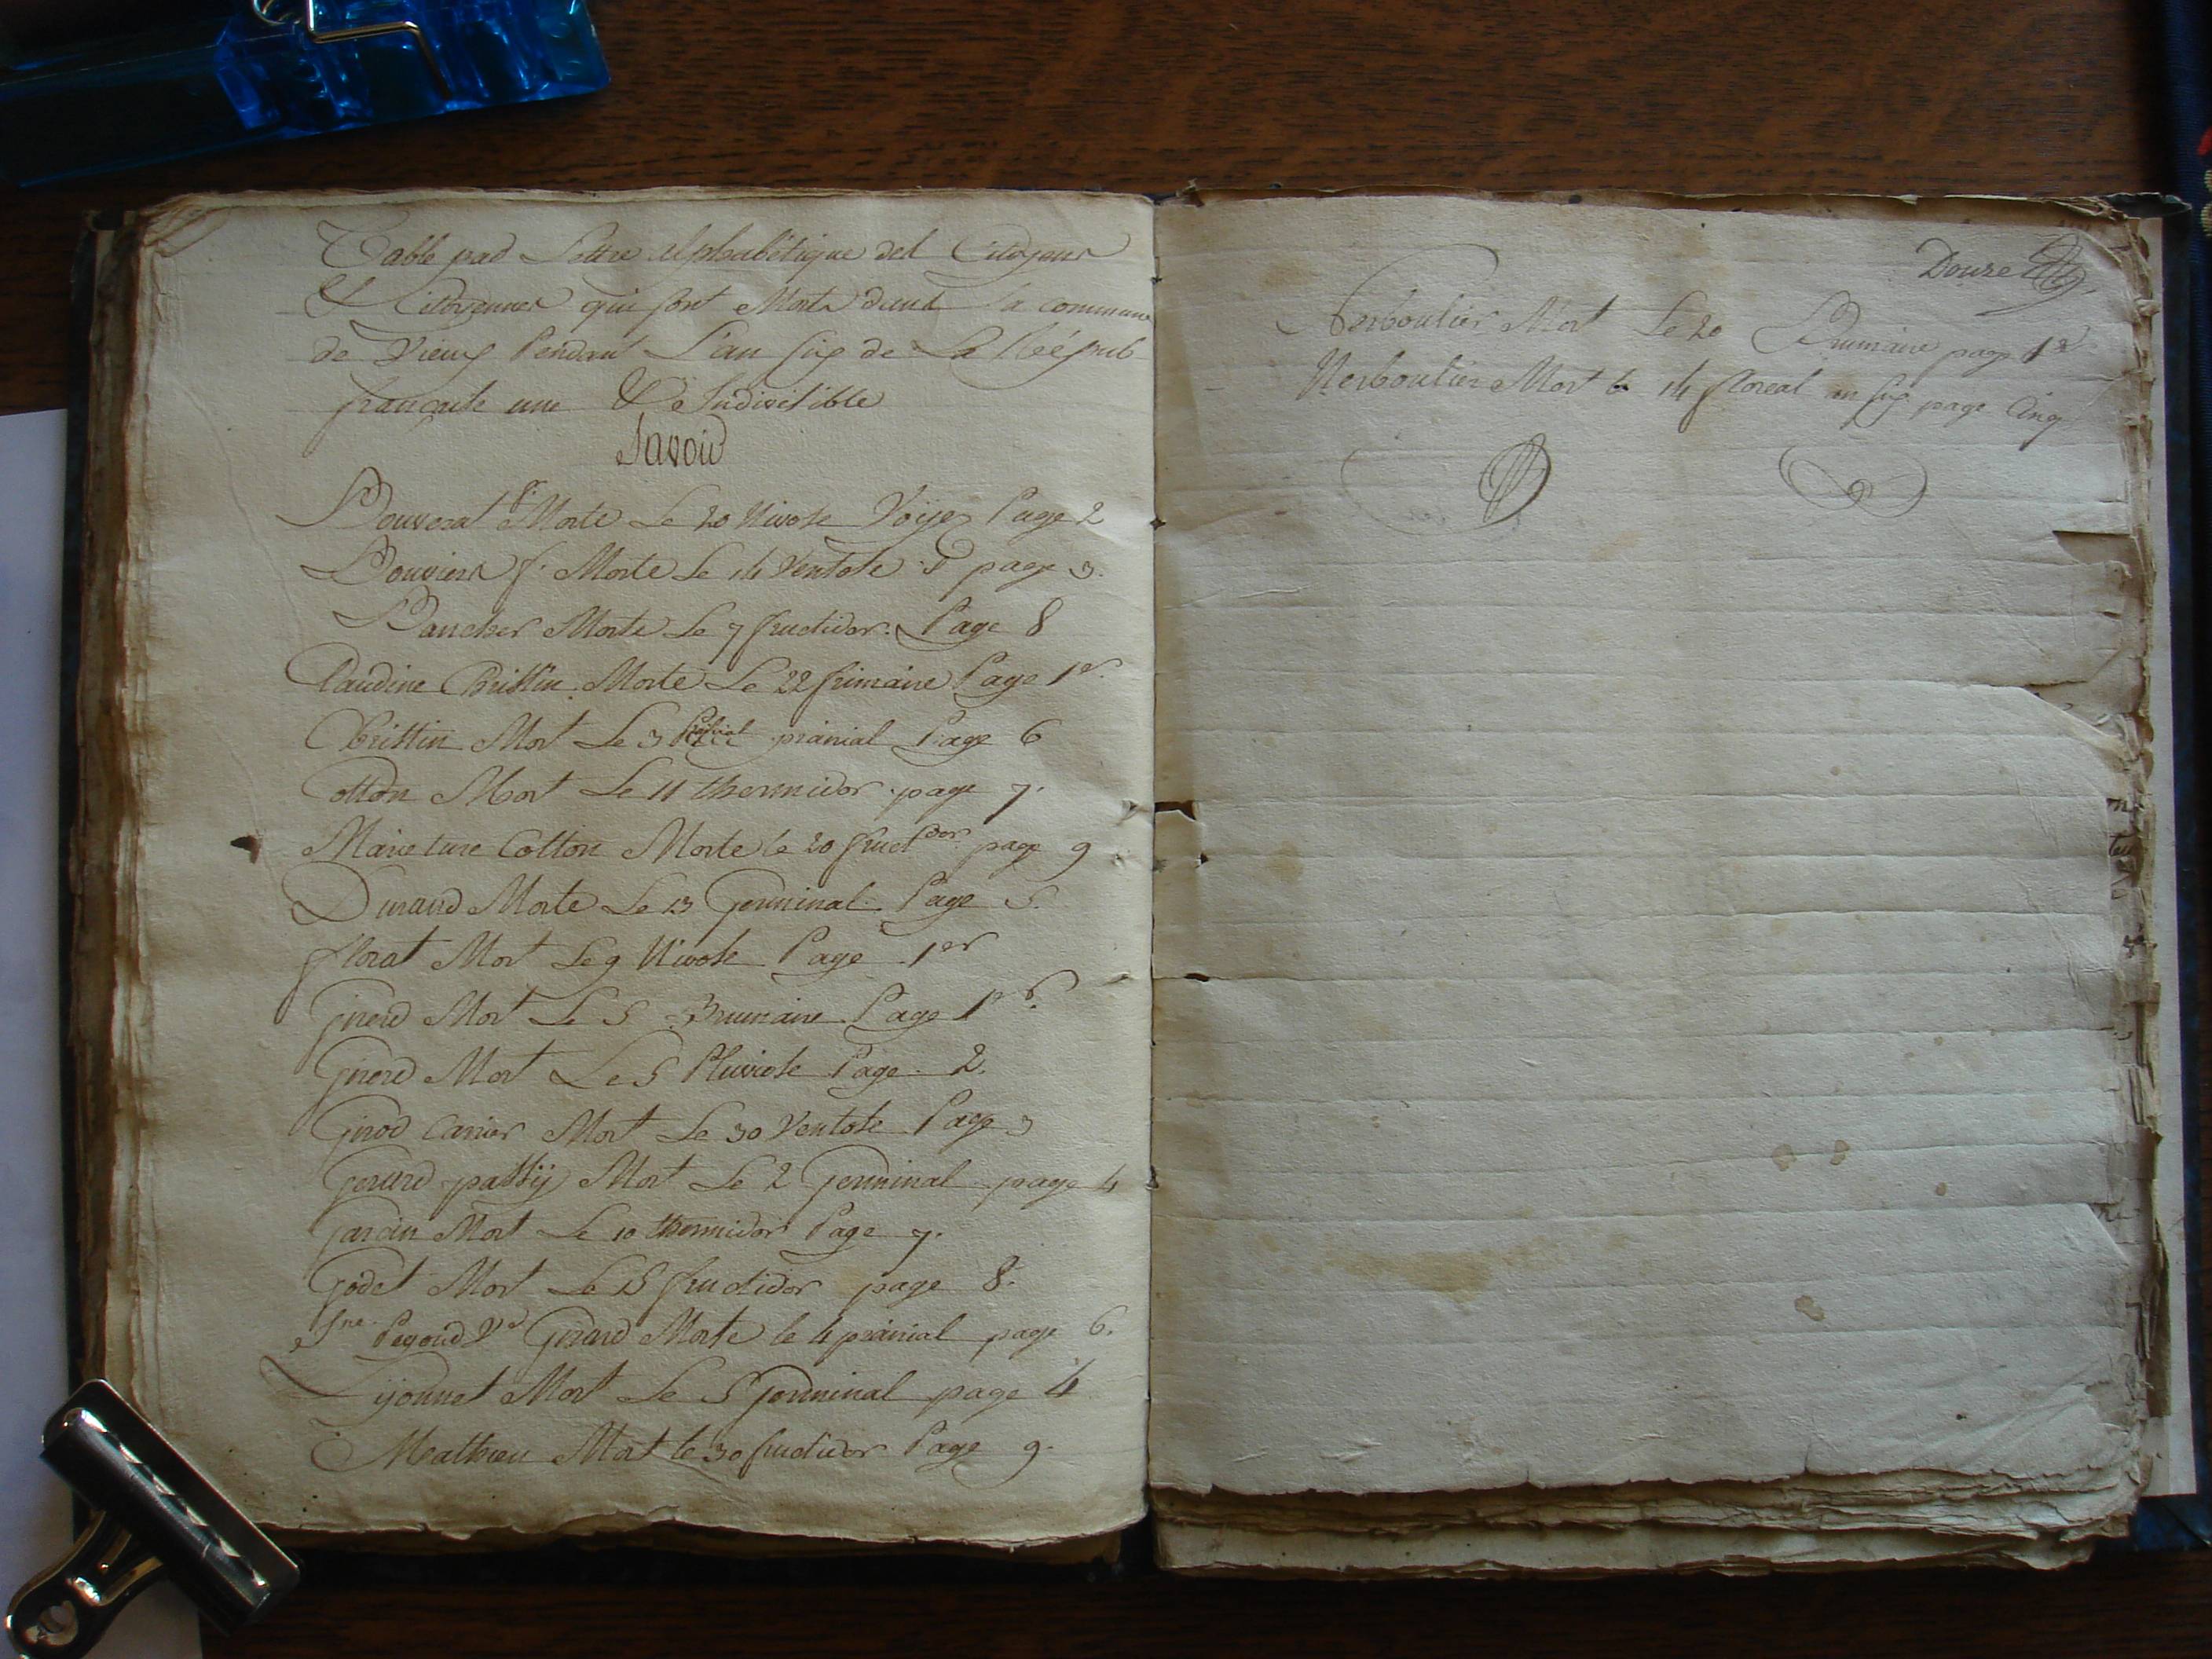 Table par Lettre Alphabétique des Citoyens
& Citoyennes qui sont Morts dans la commune
de Vieux Pendant L'an six de La Répub
francaise une & Indivisible
Savoir
Bouverat f. Morte Le 20 Nivose Voÿez Page 2
Bouvier f. Morte Le 14 Ventose page 3.
Morte Le 7 fructidor. Page 8
Claudine Brittin Morte Le 22 frimaire Page 1er
Brittin Mort Le 3 prairial Page 6
Cotton Mort Le 11 thermidor page 7.
Cotton Morte le 20 fructdor page 9
Durand Morte Le 13 Germinal. Page 5.
florat Mort Le 9 Nivose Page 1er
Girerd Mort Le 5 Brumaire Page 1er
Girerd Mort Le 5 Pluviose Page. 2.
Girod Carrier Mort Le 30 Ventose Page 3
passÿ Mort Le 2 Germinal page 4
Jardin Mort Le 10 thermidor Page 7.
Godet Mort Le 15 fructidor page 8.
Vve Girard Morte le 4 prairial page 6.
Lÿonnet Mort Le 5 Germinal page 4
Mathieu Mort le 30 fructidor Page 9.
Douze
Nerboulier Mort Le 20 Brumaire page 1er
Nerboulier Mort le 14 floreal an six page Cinq